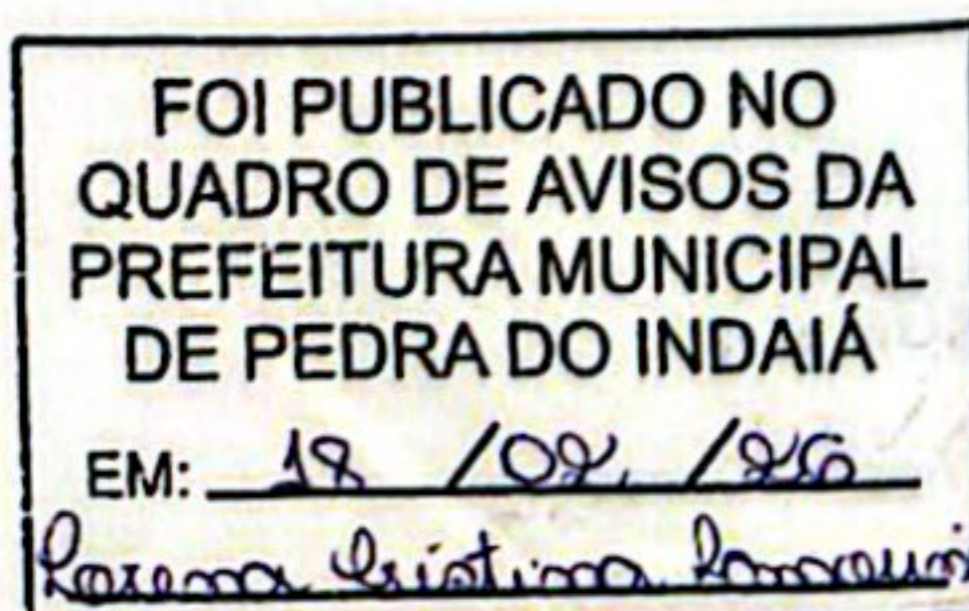 FOI PUBLICADO NO
QUADRO DE AVISOS DA
PREFEITURA MUNICIPAL
DE PEDRA DO INDAIÁ
EM: 18 /02 /26
Lorena Cristina